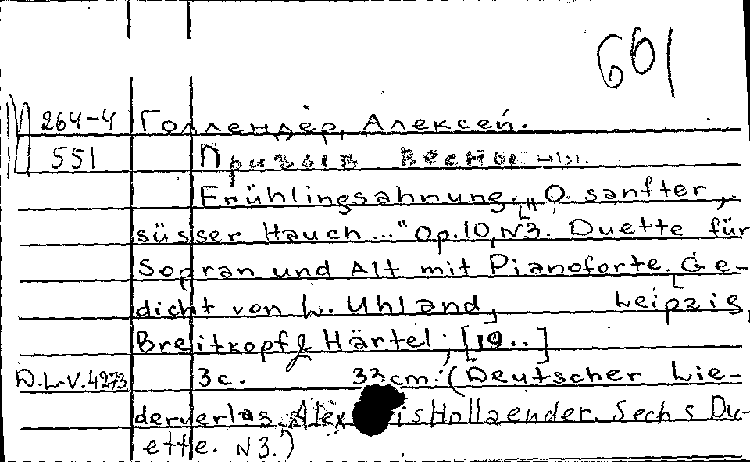 601
264-4 Голлендер, Алексей.
551 Призыв весны
Frühlingsahnung. „O sanfter,
süsser Hauch ..." Op.10, N3. Duette für
Sopran und Alt mit Pianoforte. Ge-
dicht von L. Uhland, Leipzig,
Breitkopf & Härtel, [19..]
D.L.V.4273 3c. 33cm. (Deutscher Lie-
derverlag. Alexis Hollaender. Sechs Du-
ette. N3.)